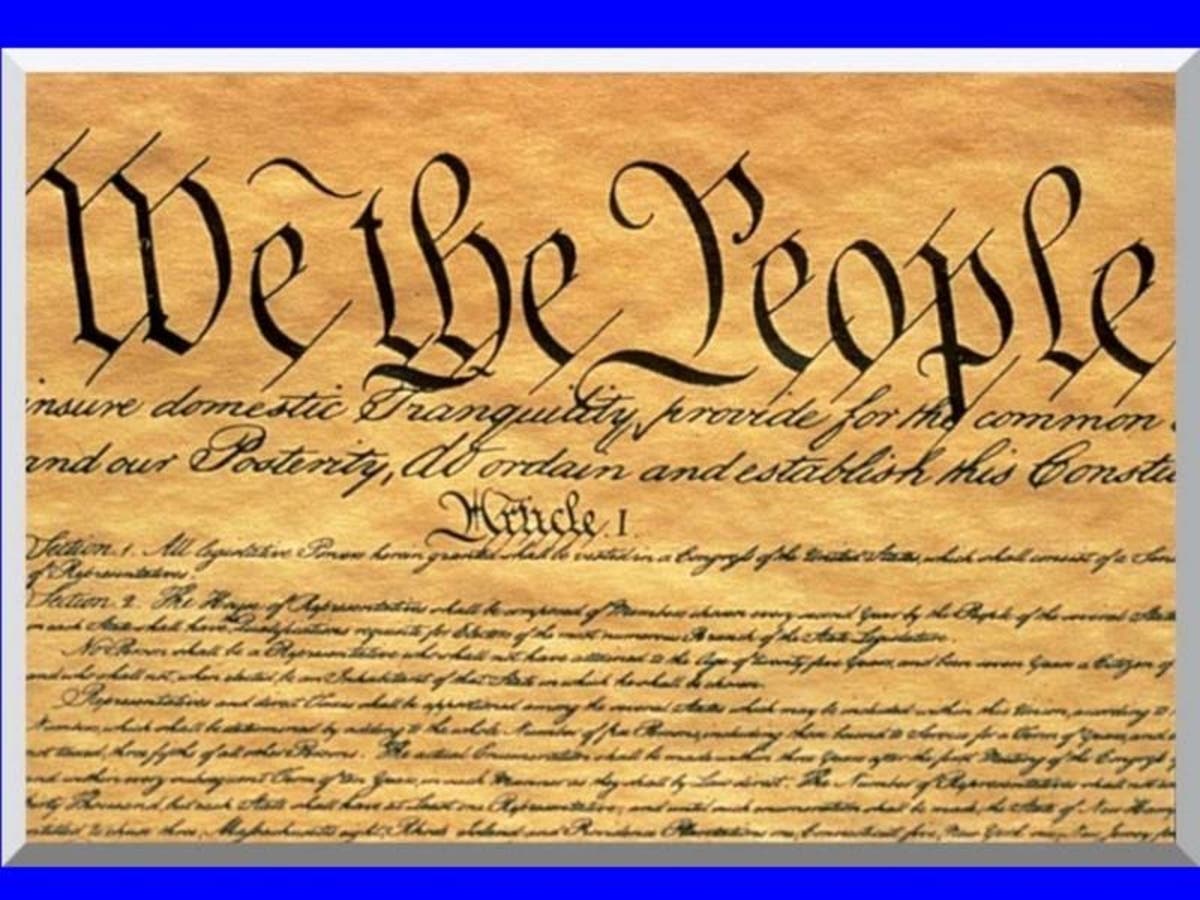 We the People
insure domestic Tranquility, provide for the common
and our Posterity, do ordain and establish this Constitu
Article. I.
Section. 1. All legislative Powers herein granted shall be vested in a Congress of the United States, which shall consist of a Sen
of Representatives.
Section. 2. The House of Representatives shall be composed of Members chosen every second Year by the People of the several States
in each State shall have Qualifications requisite for Electors of the most numerous Branch of the State Legislature.
No Person shall be a Representative who shall not have attained to the Age of twenty five Years, and been seven Years a Citizen of
and who shall not, when elected, be an Inhabitant of that State in which he shall be chosen.
Representatives and direct Taxes shall be apportioned among the several States which may be included within this Union, according to
Numbers, which shall be determined by adding to the whole Number of free Persons, including those bound to Service for a Term of Years, and
not taxed, three fifths of all other Persons. The actual Enumeration shall be made within three Years after the first Meeting of the Congress
and within every subsequent Term of ten Years, in such Manner as they shall by Law direct. The Number of Representatives shall not
thirty Thousand, but each State shall have at Least one Representative; and until such enumeration shall be made, the State of New Ham
entitled to chuse three, Massachusetts eight, Rhode Island and Providence Plantations one, Connecticut five, New York six, New Jersey